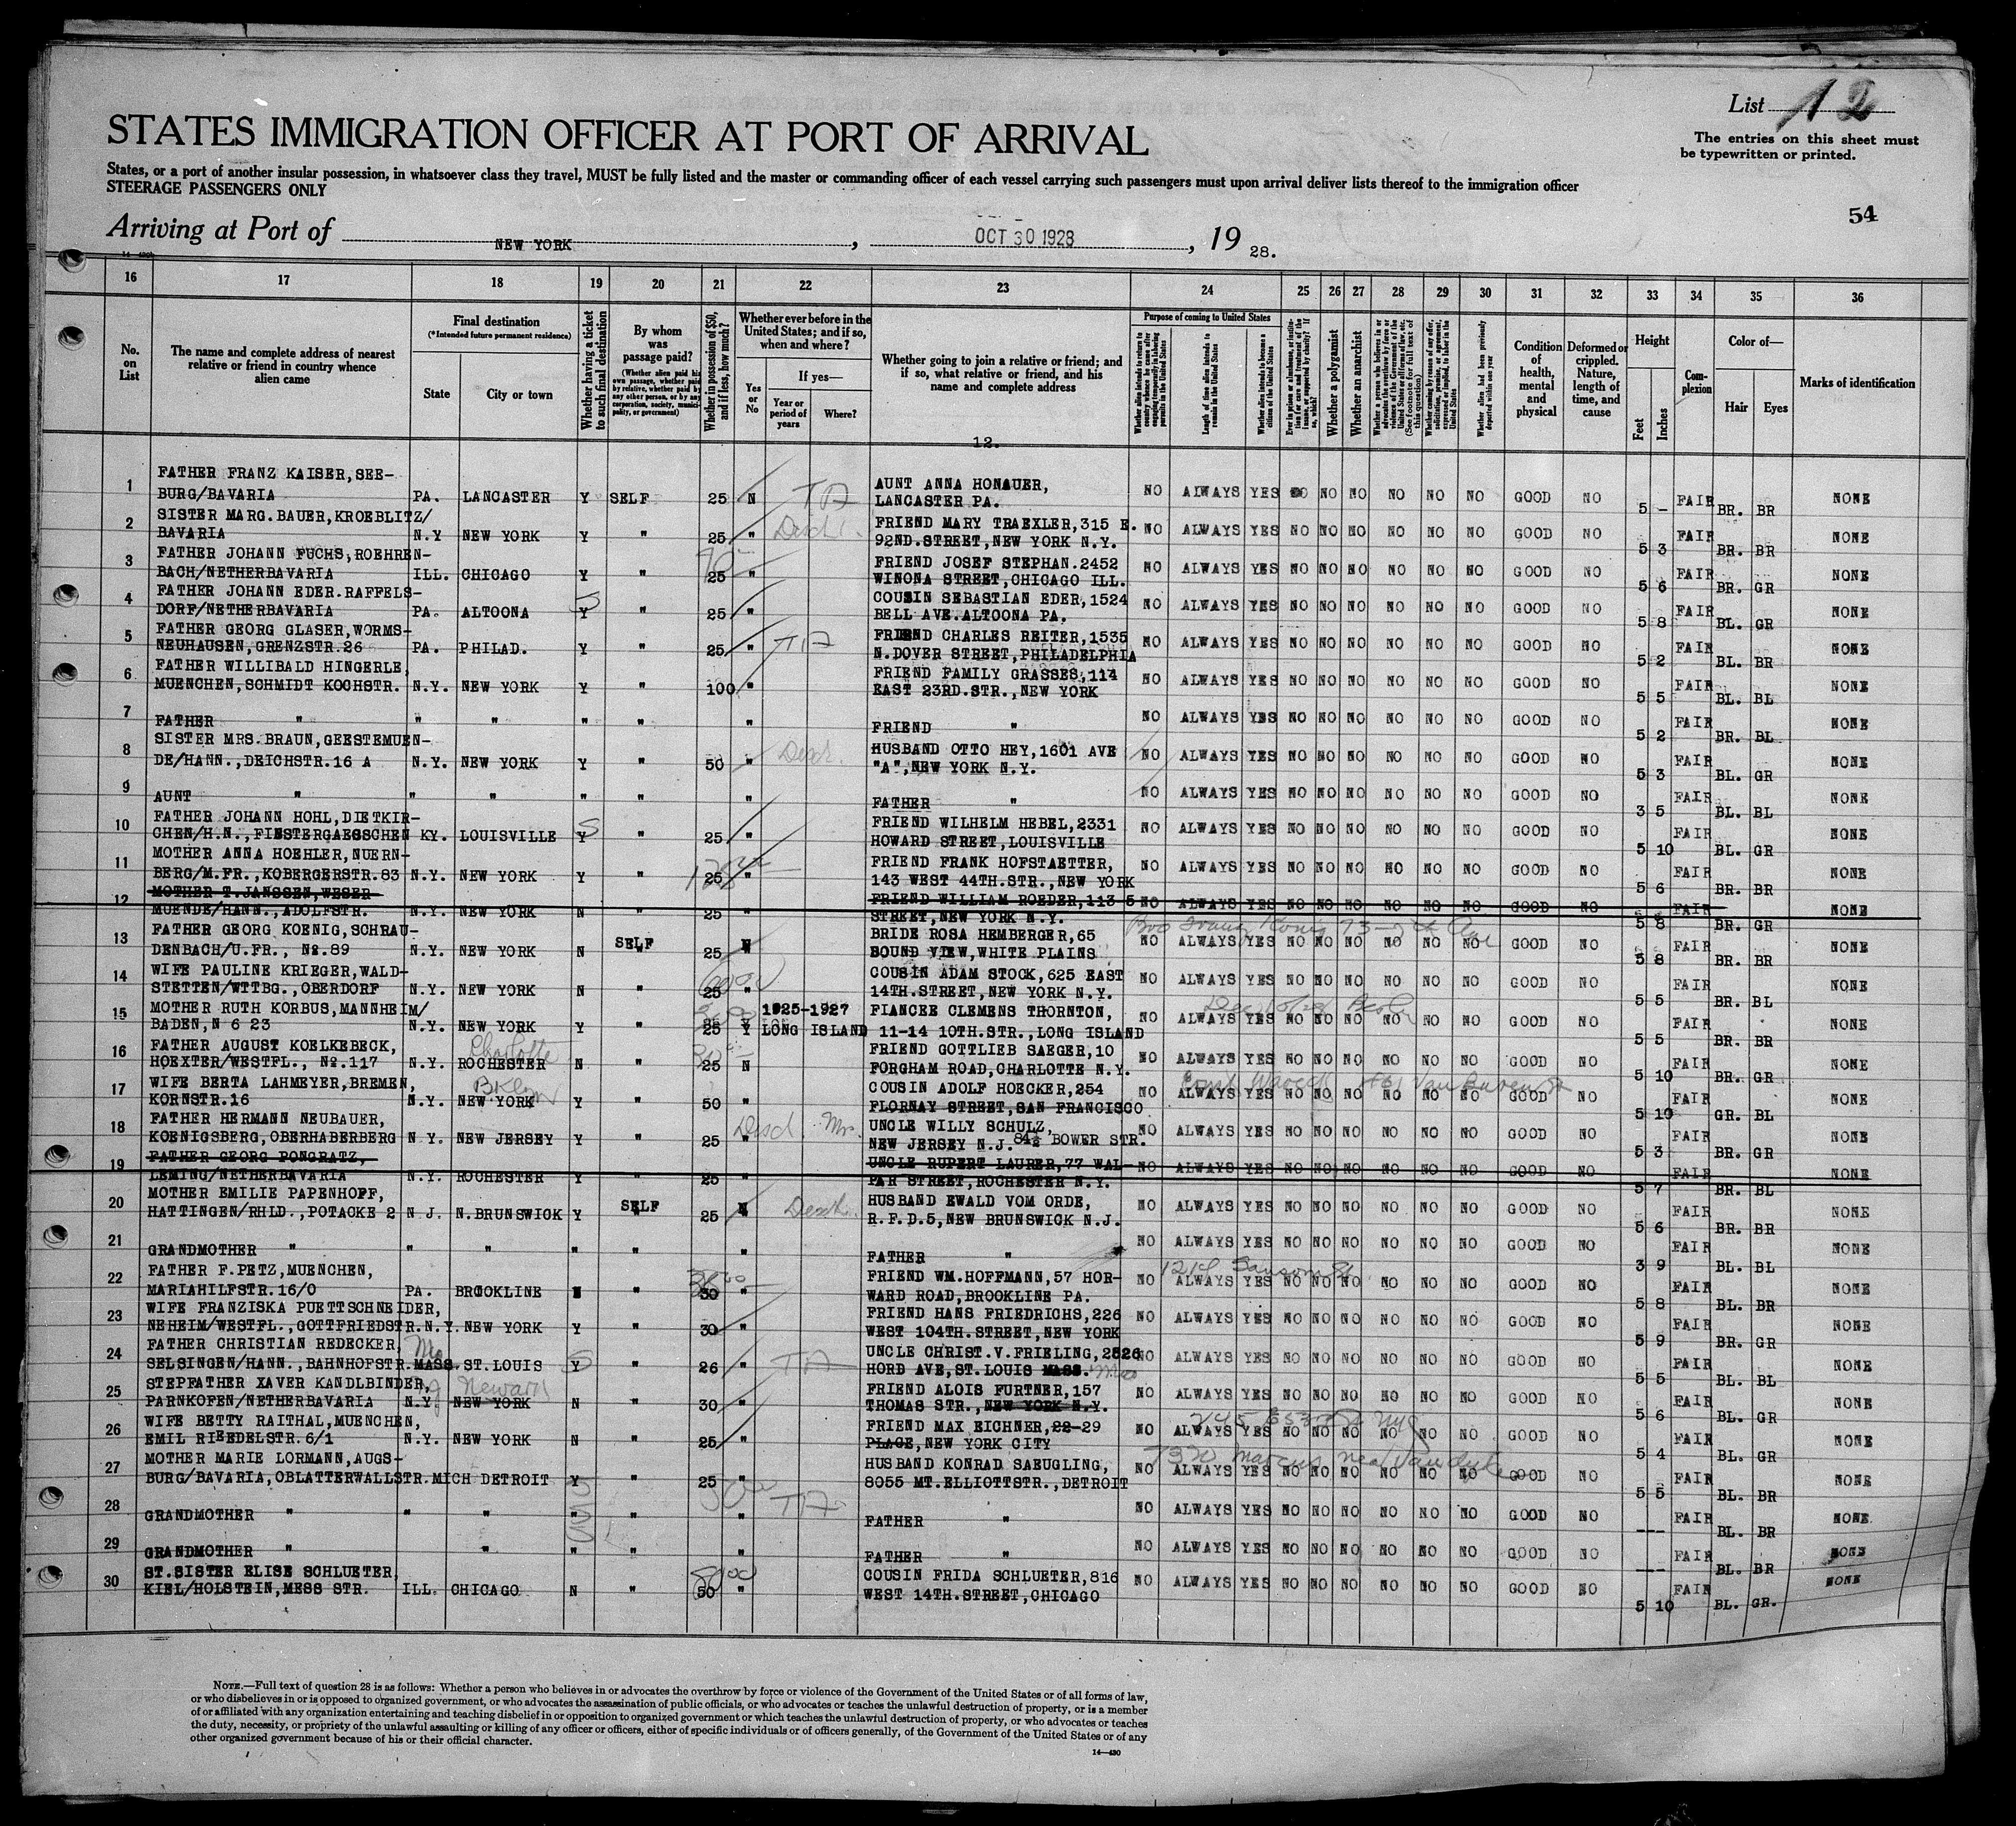 List 12
STATES IMMIGRATION OFFICER AT PORT OF ARRIVAL
The entries on this sheet must
be typewritten or printed.
States, or a port of another insular possession, in whatsoever class they travel, MUST be fully listed and the master or commanding officer of each vessel carrying such passengers must upon arrival deliver lists thereof to the immigration officer
STEERAGE PASSENGERS ONLY
54
Arriving at Port of NEW YORK, OCT 30 1928, 19 28.
16 17 18 19 20 21 22 23 24 25 26 27 28 29 30 31 32 33 34 35 36
No. on List
The name and complete address of nearest relative or friend in country whence alien came
Final destination
(*Intended future permanent residence)
State
City or town
Whether having a ticket to such final destination
By whom was passage paid?
(Whether alien paid his own passage, whether paid by relative, whether paid by any other person, or by any corporation, society, municipality, or government)
Whether in possession of $50, and if less, how much?
Whether ever before in the United States; and if so, when and where?
Yes or No
If yes—
Year or period of years
Where?
Whether going to join a relative or friend; and if so, what relative or friend, and his name and complete address
12.
Purpose of coming to United States
Length of time alien intends to remain in the United States
Whether alien intends to become a citizen of the United States
Whether a polygamist
Whether an anarchist
Whether alien had been previously deported within one year
Condition of health, mental and physical
Deformed or crippled. Nature, length of time, and cause
Height
Feet
Inches
Complexion
Color of—
Hair
Eyes
Marks of identification
1 FATHER FRANZ KAISER,SEE-
BURG/BAVARIA PA. LANCASTER Y SELF 25 N AUNT ANNA HONAUER,
LANCASTER PA. NO ALWAYS YES NO NO NO NO NO NO GOOD NO 5 - FAIR BR. BR NONE
2 SISTER MARG.BAUER,KROEBLITZ/
BAVARIA N.Y NEW YORK Y " 25 " FRIEND MARY TRAEXLER,315 E.
92ND.STREET,NEW YORK N.Y. NO ALWAYS YES NO NO NO NO NO NO GOOD NO 5 3 FAIR BR. BR NONE
3 FATHER JOHANN FUCHS,ROEHREN-
BACH/NETHERBAVARIA ILL. CHICAGO Y " 25 " FRIEND JOSEF STEPHAN.2452
WINONA STREET,CHICAGO ILL. NO ALWAYS YES NO NO NO NO NO NO GOOD NO 5 6 FAIR BR. GR NONE
4 FATHER JOHANN EDER.RAFFELS-
DORF/NETHERBAVARIA PA. ALTOONA Y " 25 " COUSIN SEBASTIAN EDER,1524
BELL AVE.ALTOONA PA. NO ALWAYS YES NO NO NO NO NO NO GOOD NO 5 8 FAIR BL. GR NONE
5 FATHER GEORG GLASER,WORMS-
NEUHAUSEN,GRENZSTR.26 PA. PHILAD. Y " 25 " FRIEND CHARLES REITER,1535
N.DOVER STREET,PHILADELPHIA NO ALWAYS YES NO NO NO NO NO NO GOOD NO 5 2 FAIR BL. BR NONE
6 FATHER WILLIBALD HINGERLE,
MUENCHEN,SCHMIDT KOCHSTR. N.Y. NEW YORK Y " 100 " FRIEND FAMILY GRASSES,114
EAST 23RD.STR.,NEW YORK NO ALWAYS YES NO NO NO NO NO NO GOOD NO 5 5 FAIR BL. BL NONE
7 FATHER " " " " " " FRIEND " NO ALWAYS YES NO NO NO NO NO NO GOOD NO 5 2 FAIR BR. BL NONE
8 SISTER MRS.BRAUN,GEESTEMUEN-
DE/HANN.,DEICHSTR.16 A N.Y. NEW YORK Y " 50 " HUSBAND OTTO HEY,1601 AVE
"A",NEW YORK N.Y. NO ALWAYS YES NO NO NO NO NO NO GOOD NO 5 3 FAIR BL. GR NONE
9 AUNT " " " " " " FATHER " NO ALWAYS YES NO NO NO NO NO NO GOOD NO 3 5 FAIR BL. BL NONE
10 FATHER JOHANN HOHL,DIETKIR-
CHEN/H.N.,FINSTERGAESSCHEN KY. LOUISVILLE Y " 25 " FRIEND WILHELM HEBEL,2331
HOWARD STREET,LOUISVILLE NO ALWAYS YES NO NO NO NO NO NO GOOD NO 5 10 FAIR BL. GR NONE
11 MOTHER ANNA HOEHLER,NUERN-
BERG/M.FR.,KOBERGERSTR.83 N.Y. NEW YORK Y " 25 " FRIEND FRANK HOFSTAETTER,
143 WEST 44TH.STR.,NEW YORK NO ALWAYS YES NO NO NO NO NO NO GOOD NO 5 6 FAIR BR. BR NONE
12 MOTHER T.JANSSEN,WESER-
MUENDE/HANN.,ADOLFSTR. N.Y. NEW YORK N " 25 " FRIEND WILLIAM ROEDER,113 5
STREET,NEW YORK N.Y. NO ALWAYS YES NO NO NO NO NO NO GOOD NO 5 8 FAIR BR. GR NONE
13 FATHER GEORG KOENIG,SCHRAU-
DENBACH/U.FR., No.89 N.Y. NEW YORK N SELF 25 N BRIDE ROSA HEMBERGER,65
SOUND VIEW,WHITE PLAINS NO ALWAYS YES NO NO NO NO NO NO GOOD NO 5 8 FAIR BR. BR NONE
14 WIFE PAULINE KRIEGER,WALD-
STETTEN/WTTBG.,OBERDORF N.Y. NEW YORK N " 25 " COUSIN ADAM STOCK,625 EAST
14TH.STREET,NEW YORK N.Y. NO ALWAYS YES NO NO NO NO NO NO GOOD NO 5 5 FAIR BR. BL NONE
15 MOTHER RUTH KORBUS,MANNHEIM/
BADEN,N 6 23 N.Y. NEW YORK Y " 25 Y 1925-1927 LONG ISLAND FIANCEE CLEMENS THORNTON,
11-14 10TH.STR.,LONG ISLAND NO ALWAYS YES NO NO NO NO NO NO GOOD NO 5 5 FAIR BR. BR NONE
16 FATHER AUGUST KOELKEBECK, Charlotte
HOEXTER/WESTFL., No.117 N.Y. ROCHESTER N " 25 N FRIEND GOTTLIEB SAEGER,10
FORGHAM ROAD,CHARLOTTE N.Y. NO ALWAYS YES NO NO NO NO NO NO GOOD NO 5 10 FAIR BR. GR NONE
17 WIFE BERTA LAHMEYER,BREMEN, Bklyn
KORNSTR.16 N.Y. NEW YORK Y " 50 " COUSIN ADOLF HOECKER,254
FLORNAY STREET,SAN FRANCISCO NO ALWAYS YES NO NO NO NO NO NO GOOD NO 5 10 FAIR GR. BL NONE
18 FATHER HERMANN NEUBAUER,
KOENIGSBERG,OBERHABERBERG N.Y. NEW JERSEY Y " 25 " UNCLE WILLY SCHULZ,
NEW JERSEY N.J. 84½ BOWER STR. NO ALWAYS YES NO NO NO NO NO NO GOOD NO 5 3 FAIR BR. GR NONE
19 FATHER GEORG PONGRATZ,
LEMING/NETHERBAVARIA N.Y. ROCHESTER Y " 25 " UNCLE RUPERT LAURER,77 WAL-
PAR STREET,ROCHESTER N.Y. NO ALWAYS YES NO NO NO NO NO NO GOOD NO 5 7 FAIR BR. BL NONE
20 MOTHER EMILIE PAPENHOFF,
HATTINGEN/RHLD.,POTACKE 2 N.J. N.BRUNSWICK Y SELF 25 N HUSBAND EWALD VOM ORDE,
R.F.D.5,NEW BRUNSWICK N.J. NO ALWAYS YES NO NO NO NO NO NO GOOD NO 5 6 FAIR BR. BR NONE
21 GRANDMOTHER " " " " " " FATHER " NO ALWAYS YES NO NO NO NO NO NO GOOD NO 3 9 FAIR BL. BL NONE
22 FATHER F.PETZ,MUENCHEN,
MARIAHILFSTR.16/0 PA. BROOKLINE N " 30 " FRIEND WM.HOFFMANN,57 HOR-
WARD ROAD,BROOKLINE PA. 1214 Sansom St. NO ALWAYS YES NO NO NO NO NO NO GOOD NO 5 8 FAIR BL. BR NONE
23 WIFE FRANZISKA PUETTSCHNEIDER,
NEHEIM/WESTFL.,GOTTFRIEDSTR. N.Y. NEW YORK Y " 30 " FRIEND HANS FRIEDRICHS,226
WEST 104TH.STREET,NEW YORK NO ALWAYS YES NO NO NO NO NO NO GOOD NO 5 9 FAIR BR. GR NONE
24 FATHER CHRISTIAN REDECKER, Mo
SELSINGEN/HANN.,BAHNHOFSTR. MASS. ST.LOUIS Y " 26 " UNCLE CHRIST.V.FRIELING,2826
HORD AVE,ST.LOUIS MASS. NO ALWAYS YES NO NO NO NO NO NO GOOD NO 5 5 FAIR BL. BL NONE
25 STEPFATHER XAVER KANDLBINDER, Newark
PARNKOFEN/NETHERBAVARIA N.Y. NEW YORK N " 30 " FRIEND ALOIS FURTNER,157
THOMAS STR.,NEW YORK N.Y. NO ALWAYS YES NO NO NO NO NO NO GOOD NO 5 6 FAIR BL. GR NONE
26 WIFE BETTY RAITHAL,MUENCHEN,
EMIL RIEDELSTR.6/1 N.Y. NEW YORK N " 25 " FRIEND MAX EICHNER,22-29
PLACE,NEW YORK CITY NO ALWAYS YES NO NO NO NO NO NO GOOD NO 5 4 FAIR BL. GR NONE
27 MOTHER MARIE LORMANN,AUGS-
BURG/BAVARIA,OBLATTERWALLSTR. MICH DETROIT Y " 25 " HUSBAND KONRAD SAEUGLING,
8055 MT.ELLIOTTSTR.,DETROIT NO ALWAYS YES NO NO NO NO NO NO GOOD NO 5 5 FAIR BL. BR NONE
28 GRANDMOTHER " " " " " " FATHER " NO ALWAYS YES NO NO NO NO NO NO GOOD NO --- FAIR BL. BR NONE
29 GRANDMOTHER " " " " " FATHER " NO ALWAYS YES NO NO NO NO NO NO GOOD NO --- FAIR BL. BR NONE
30 ST.SISTER ELISE SCHLUETER,
KIEL/HOLSTEIN,MESS STR. ILL. CHICAGO N " 50 " COUSIN FRIDA SCHLUETER,816
WEST 14TH.STREET,CHICAGO NO ALWAYS YES NO NO NO NO NO NO GOOD NO 5 10 FAIR BL. GR. NONE
NOTE.—Full text of question 28 is as follows: Whether a person who believes in or advocates the overthrow by force or violence of the Government of the United States or of all forms of law,
or who disbelieves in or is opposed to organized government, or who advocates the assassination of public officials, or who advocates or teaches the unlawful destruction of property, or is a member
of or affiliated with any organization entertaining and teaching disbelief in or opposition to organized government or which teaches the unlawful destruction of property, or who advocates or teaches
the duty, necessity, or propriety of the unlawful assaulting or killing of any officer or officers, either of specific individuals or of officers generally, of the Government of the United States or of any
other organized government because of his or their official character.
14—430